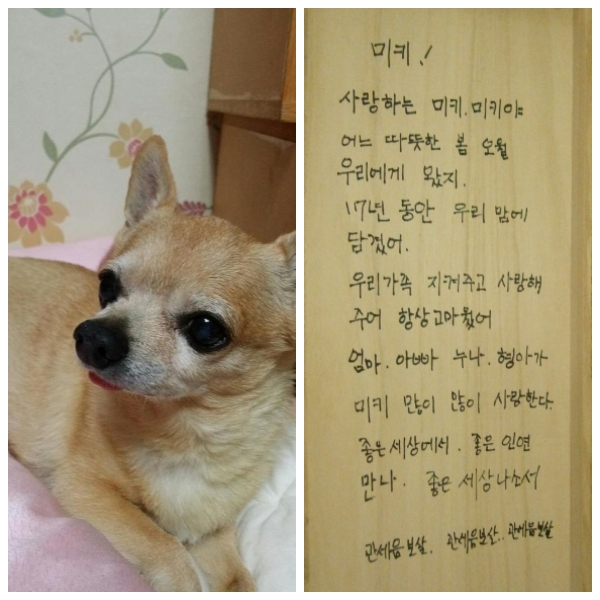 미키!
사랑하는 미키. 미키야
어느 따뜻한 봄 오월
우리에게 왔지.
17년 동안 우리 맘에
담겼어.
우리가족 지켜주고 사랑해
주어 항상고마웠어
엄마. 아빠 누나. 형아가
미키 많이 많이 사랑한다.
좋은세상에서. 좋은 인연
만나. 좋은 세상나소서
관세음보살. 관세음보살.. 관세음보살